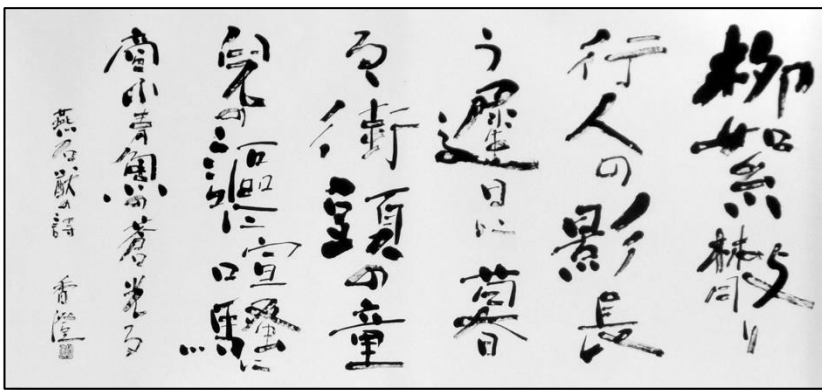 柳絮散り
行人の影長
う遲日に暮
る街頭の童
兒の謳に喧騒に
商ふ青魚の蒼光る
燕石猷の詩 香澄